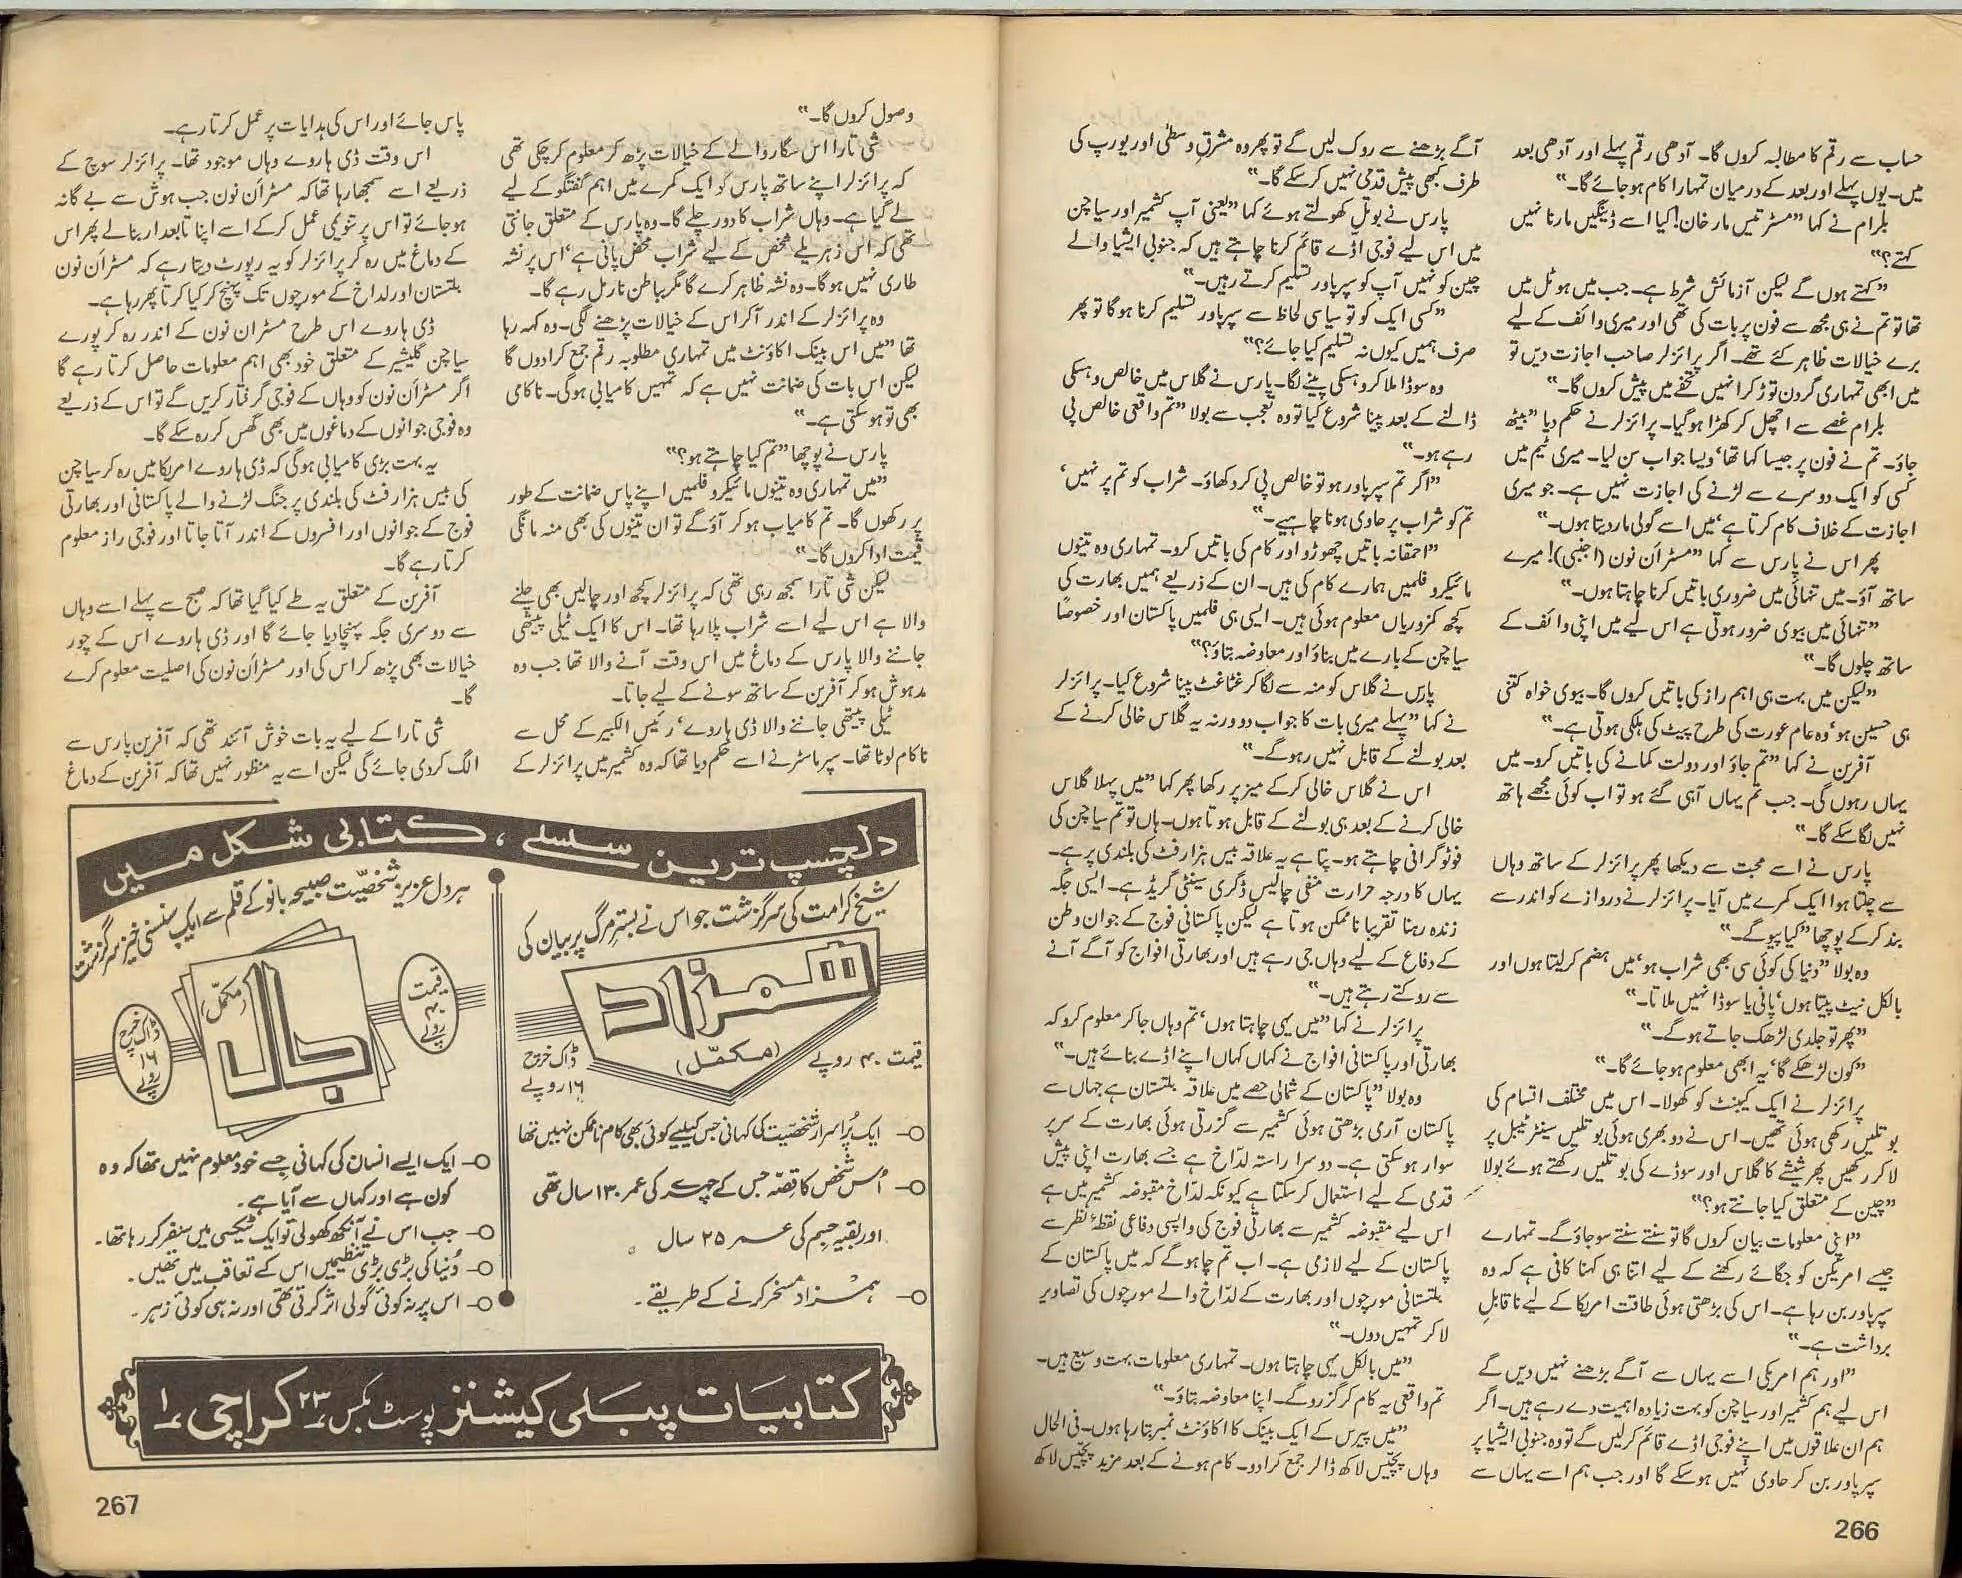 حساب سے رقم کا مطالبہ کروں گا۔ آدھی رقم پہلے اور آدھی بعد
میں۔ یوں پہلے اور بعد کے درمیان تمہارا کام ہو جائے گا۔"
بلرام نے کہا "مسٹر تیس مار خان! کیا اسے ڈینگیں مارنا نہیں
کہتے؟"
"کہتے ہوں گے لیکن آزمائش شرط ہے۔ جب میں ہوٹل میں
تھا تو تم نے ہی مجھ سے فون پر بات کی تھی اور میری وائف کے لیے
برے خیالات ظاہر کئے تھے۔ اگر پرائزلر صاحب اجازت دیں تو
میں ابھی تمہاری گردن توڑ کر انہیں تحفے میں پیش کروں گا۔"
بلرام غصے سے اچھل کر کھڑا ہو گیا۔ پرائزلر نے حکم دیا "بیٹھ
جاؤ۔ تم نے فون پر جیسا کہا تھا' ویسا جواب سن لیا۔ میری ٹیم میں
کسی کو ایک دوسرے سے لڑنے کی اجازت نہیں ہے۔ جو میری
اجازت کے خلاف کام کرتا ہے' میں اسے گولی مار دیتا ہوں۔"
پھر اس نے پارس سے کہا "مسٹر اَن نون (اجنبی)! میرے
ساتھ آؤ۔ میں تنہائی میں ضروری باتیں کرنا چاہتا ہوں۔"
"تنہائی میں بیوی ضرور ہوتی ہے اس لیے میں اپنی وائف کے
ساتھ چلوں گا۔"
"لیکن میں بہت ہی اہم راز کی باتیں کروں گا۔ بیوی خواہ کتنی
ہی حسین ہو' وہ عام عورت کی طرح پیٹ کی ہلکی ہوتی ہے۔"
آفرین نے کہا "تم جاؤ اور دولت کمانے کی باتیں کرو۔ میں
یہاں رہوں گی۔ جب تم یہاں آ ہی گئے ہو تو اب کوئی مجھے ہاتھ
نہیں لگا سکے گا۔"
پارس نے اسے محبت سے دیکھا پھر پرائزلر کے ساتھ وہاں
سے چلتا ہوا ایک کمرے میں آیا۔ پرائزلر نے دروازے کو اندر سے
بند کر کے پوچھا "کیا پیو گے۔"
وہ بولا "دنیا کی کوئی سی بھی شراب ہو' میں ہضم کر لیتا ہوں اور
بالکل نیٹ پیتا ہوں' پانی یا سوڈا نہیں ملاتا۔"
"پھر تو جلدی لڑھک جاتے ہو گے۔"
"کون لڑھکے گا' یہ ابھی معلوم ہو جائے گا۔"
پرائزلر نے ایک کیبنٹ کو کھولا۔ اس میں مختلف اقسام کی
بوتلیں رکھی ہوئی تھیں۔ اس نے دو بھری ہوئی بوتلیں سینٹر ٹیبل پر
لا کر رکھیں پھر شیشے کا گلاس اور سوڈے کی بوتلیں رکھتے ہوئے بولا
"چین کے متعلق کیا جانتے ہو؟"
"اپنی معلومات بیان کروں گا تو سنتے سنتے سو جاؤ گے۔ تمہارے
جیسے امریکن کو جگائے رکھنے کے لیے اتنا ہی کہنا کافی ہے کہ وہ
سپر پاور بن رہا ہے۔ اس کی بڑھتی ہوئی طاقت امریکا کے لیے ناقابل
برداشت ہے۔"
"اور ہم امریکی اسے یہاں سے آگے بڑھنے نہیں دیں گے
اس لیے ہم کشمیر اور سیاچن کو بہت زیادہ اہمیت دے رہے ہیں۔ اگر
ہم ان علاقوں میں اپنے فوجی اڈے قائم کرلیں گے تو وہ جنوبی ایشیا پر
سپر پاور بن کر حاوی نہیں ہو سکے گا اور جب ہم اسے یہاں سے
آگے بڑھنے سے روک لیں گے تو پھر وہ مشرق وسطیٰ اور یورپ کی
طرف کبھی پیش قدمی نہیں کر سکے گا۔"
پارس نے بوتل کھولتے ہوئے کہا "یعنی آپ کشمیر اور سیاچن
میں اس لیے فوجی اڈے قائم کرنا چاہتے ہیں کہ جنوبی ایشیا والے
چین کو نہیں آپ کو سپر پاور تسلیم کرتے رہیں۔"
"کسی ایک کو تو سیاسی لحاظ سے سپر پاور تسلیم کرنا ہو گا تو پھر
صرف ہمیں کیوں نہ تسلیم کیا جائے؟"
وہ سوڈا ملا کر وہسکی پینے لگا۔ پارس نے گلاس میں خالص وہسکی
ڈالنے کے بعد پینا شروع کیا تو وہ تعجب سے بولا "تم واقعی خالص پی
رہے ہو۔"
"اگر تم سپر پاور ہو تو خالص پی کر دکھاؤ۔ شراب کو تم پر نہیں'
تم کو شراب پر حاوی ہونا چاہیے۔"
"احمقانہ باتیں چھوڑو اور کام کی باتیں کرو۔ تمہاری وہ تینوں
مائیکرو فلمیں ہمارے کام کی ہیں۔ ان کے ذریعے ہمیں بھارت کی
کچھ کمزوریاں معلوم ہوئی ہیں۔ ایسی ہی فلمیں پاکستان اور خصوصاً
سیاچن کے بارے میں بناؤ اور معاوضہ بتاؤ؟"
پارس نے گلاس کو منہ سے لگا کر غٹاغٹ پینا شروع کیا۔ پرائزلر
نے کہا "پہلے میری بات کا جواب دو ورنہ یہ گلاس خالی کرنے کے
بعد بولنے کے قابل نہیں رہو گے۔"
اس نے گلاس خالی کر کے میز پر رکھا پھر کہا "میں پہلا گلاس
خالی کرنے کے بعد ہی بولنے کے قابل ہوتا ہوں۔ ہاں تو تم سیاچن کی
فوٹو گرافی چاہتے ہو۔ پتا ہے یہ علاقہ بیس ہزار فٹ کی بلندی پر ہے۔
یہاں کا درجہ حرارت منفی چالیس ڈگری سینٹی گریڈ ہے۔ ایسی جگہ
زندہ رہنا تقریباً ناممکن ہوتا ہے لیکن پاکستانی فوج کے جوان وطن
کے دفاع کے لیے وہاں جی رہے ہیں اور بھارتی افواج کو آگے آنے
سے روکتے رہتے ہیں۔"
پرائزلر نے کہا "میں یہی چاہتا ہوں' تم وہاں جا کر معلوم کرو کہ
بھارتی اور پاکستانی افواج نے کہاں کہاں اپنے اڈے بنائے ہیں۔"
وہ بولا "پاکستان کے شمالی حصے میں علاقہ بلتستان ہے جہاں سے
پاکستان آرمی بڑھتی ہوئی کشمیر سے گزرتی ہوئی بھارت کے سر پر
سوار ہو سکتی ہے۔ دوسرا راستہ لدّاخ ہے جسے بھارت اپنی پیش
قدمی کے لیے استعمال کر سکتا ہے کیونکہ لدّاخ مقبوضہ کشمیر میں ہے
اس لیے مقبوضہ کشمیر سے بھارتی فوج کی واپسی دفاعی نقطۂ نظر سے
پاکستان کے لیے لازمی ہے۔ اب تم چاہو گے کہ میں پاکستان کے
بلتستانی مورچوں اور بھارت کے لدّاخ والے مورچوں کی تصاویر
لا کر تمہیں دوں۔"
"میں بالکل یہی چاہتا ہوں۔ تمہاری معلومات بہت وسیع ہیں۔
تم واقعی یہ کام کر گزرو گے۔ اپنا معاوضہ بتاؤ۔"
"میں پیرس کے ایک بینک کا اکاؤنٹ نمبر بتا رہا ہوں۔ فی الحال
وہاں پچیس لاکھ ڈالر جمع کرا دو۔ کام ہونے کے بعد مزید پچیس لاکھ
266
وصول کروں گا۔"
شی تارا اس سگار والے کے خیالات پڑھ کر معلوم کر چکی تھی
کہ پرائزلر اپنے ساتھ پارس کو ایک کمرے میں اہم گفتگو کے لیے
لے گیا ہے۔ وہاں شراب کا دور چلے گا۔ وہ پارس کے متعلق جانتی
تھی کہ اس زہریلے شخص کے لیے شراب محض پانی ہے' اس پر نشہ
طاری نہیں ہو گا۔ وہ نشہ ظاہر کرے گا مگر بباطن نارمل رہے گا۔
وہ پرائزلر کے اندر آ کر اس کے خیالات پڑھنے لگی۔ وہ کہہ رہا
تھا "میں اس بینک اکاؤنٹ میں تمہاری مطلوبہ رقم جمع کرا دوں گا
لیکن اس بات کی ضمانت نہیں ہے کہ تمہیں کامیابی ہو گی۔ ناکامی
بھی تو ہو سکتی ہے۔"
پارس نے پوچھا "تم کیا چاہتے ہو؟"
"میں تمہاری وہ تینوں مائیکرو فلمیں اپنے پاس ضمانت کے طور
پر رکھوں گا۔ تم کامیاب ہو کر آؤ گے تو ان تینوں کی بھی منہ مانگی
قیمت ادا کروں گا۔"
لیکن شی تارا سمجھ رہی تھی کہ پرائزلر کچھ اور چالیں بھی چلنے
والا ہے اس لیے اسے شراب پلا رہا تھا۔ اس کا ایک ٹیلی پیتھی
جاننے والا پارس کے دماغ میں اس وقت آنے والا تھا جب وہ
مدہوش ہو کر آفرین کے ساتھ سونے کے لیے جاتا۔
ٹیلی پیتھی جاننے والا ڈی ہاروے' رئیس الکبیر کے محل سے
ناکام لوٹا تھا۔ سپر ماسٹر نے اسے حکم دیا تھا کہ وہ کشمیر میں پرائزلر کے
پاس جائے اور اس کی ہدایات پر عمل کرتا رہے۔
اس وقت ڈی ہاروے وہاں موجود تھا۔ پرائزلر سوچ کے
ذریعے اسے سمجھا رہا تھا کہ مسٹر اَن نون جب ہوش سے بے گانہ
ہو جائے تو اس پر تنویمی عمل کر کے اسے اپنا تابعدار بنا لے پھر اس
کے دماغ میں رہ کر پرائزلر کو یہ رپورٹ دیتا رہے کہ مسٹر اَن نون
بلتستان اور لداخ کے مورچوں تک پہنچ کر کیا کرتا پھر رہا ہے۔
ڈی ہاروے اس طرح مسٹر ان نون کے اندر رہ کر پورے
سیاچن گلیشیر کے متعلق خود بھی اہم معلومات حاصل کرتا رہے گا
اگر مسٹر اَن نون کو وہاں کے فوجی گرفتار کریں گے تو اس کے ذریعے
وہ فوجی جوانوں کے دماغوں میں بھی گھس کر رہ سکے گا۔
یہ بہت بڑی کامیابی ہو گی کہ ڈی ہاروے امریکا میں رہ کر سیاچن
کی بیس ہزار فٹ کی بلندی پر جنگ لڑنے والے پاکستانی اور بھارتی
فوج کے جوانوں اور افسروں کے اندر آتا جاتا اور فوجی راز معلوم
کرتا رہے گا۔
آفرین کے متعلق یہ طے کیا گیا تھا کہ صبح سے پہلے اسے وہاں
سے دوسری جگہ پہنچا دیا جائے گا اور ڈی ہاروے اس کے چور
خیالات بھی پڑھ کر اس کی اور مسٹر اَن نون کی اصلیت معلوم کرے
گا۔
شی تارا کے لیے یہ بات خوش آئند تھی کہ آفرین پارس سے
الگ کر دی جائے گی لیکن اسے یہ منظور نہیں تھا کہ آفرین کے دماغ
دلچسپ ترین سلسلے، کتابی شکل میں
شیخ کرامت کی سرگزشت جو اس نے بستر مرگ پر بیان کی
ہمزاد
(مکمّل)
قیمت ۴۰ روپے
ڈاک خرچ
۱۶ روپے
ایک پُراسرار شخصیّت کی کہانی جس کیلیے کوئی بھی کام ناممکن نہیں تھا
اُس شخص کا قصّہ جس کے چہرے کی عمر ۱۳۰ سال تھی
اور بقیہ جسم کی عمر ۲۵ سال
ہمزاد مسخر کرنے کے طریقے۔
ہر دل عزیز شخصیّت صبیحہ بانو کے قلم سے ایک سنسنی خیز سرگزشت
جال
(مکمّل)
قیمت
۴۰
روپے
ڈاک خرچ
۱۶
روپے
ایک ایسے انسان کی کہانی جسے خود معلوم نہیں تھا کہ وہ
کون ہے اور کہاں سے آیا ہے۔
جب اس نے آنکھ کھولی تو ایک ٹیکسی میں سفر کر رہا تھا۔
دُنیا کی بڑی بڑی تنظیمیں اس کے تعاقب میں تھیں۔
اس پر نہ کوئی گولی اثر کرتی تھی اور نہ ہی کوئی زہر۔
کتابیات پبلی کیشنز پوسٹ بکس ۲۳ کراچی ۱
267